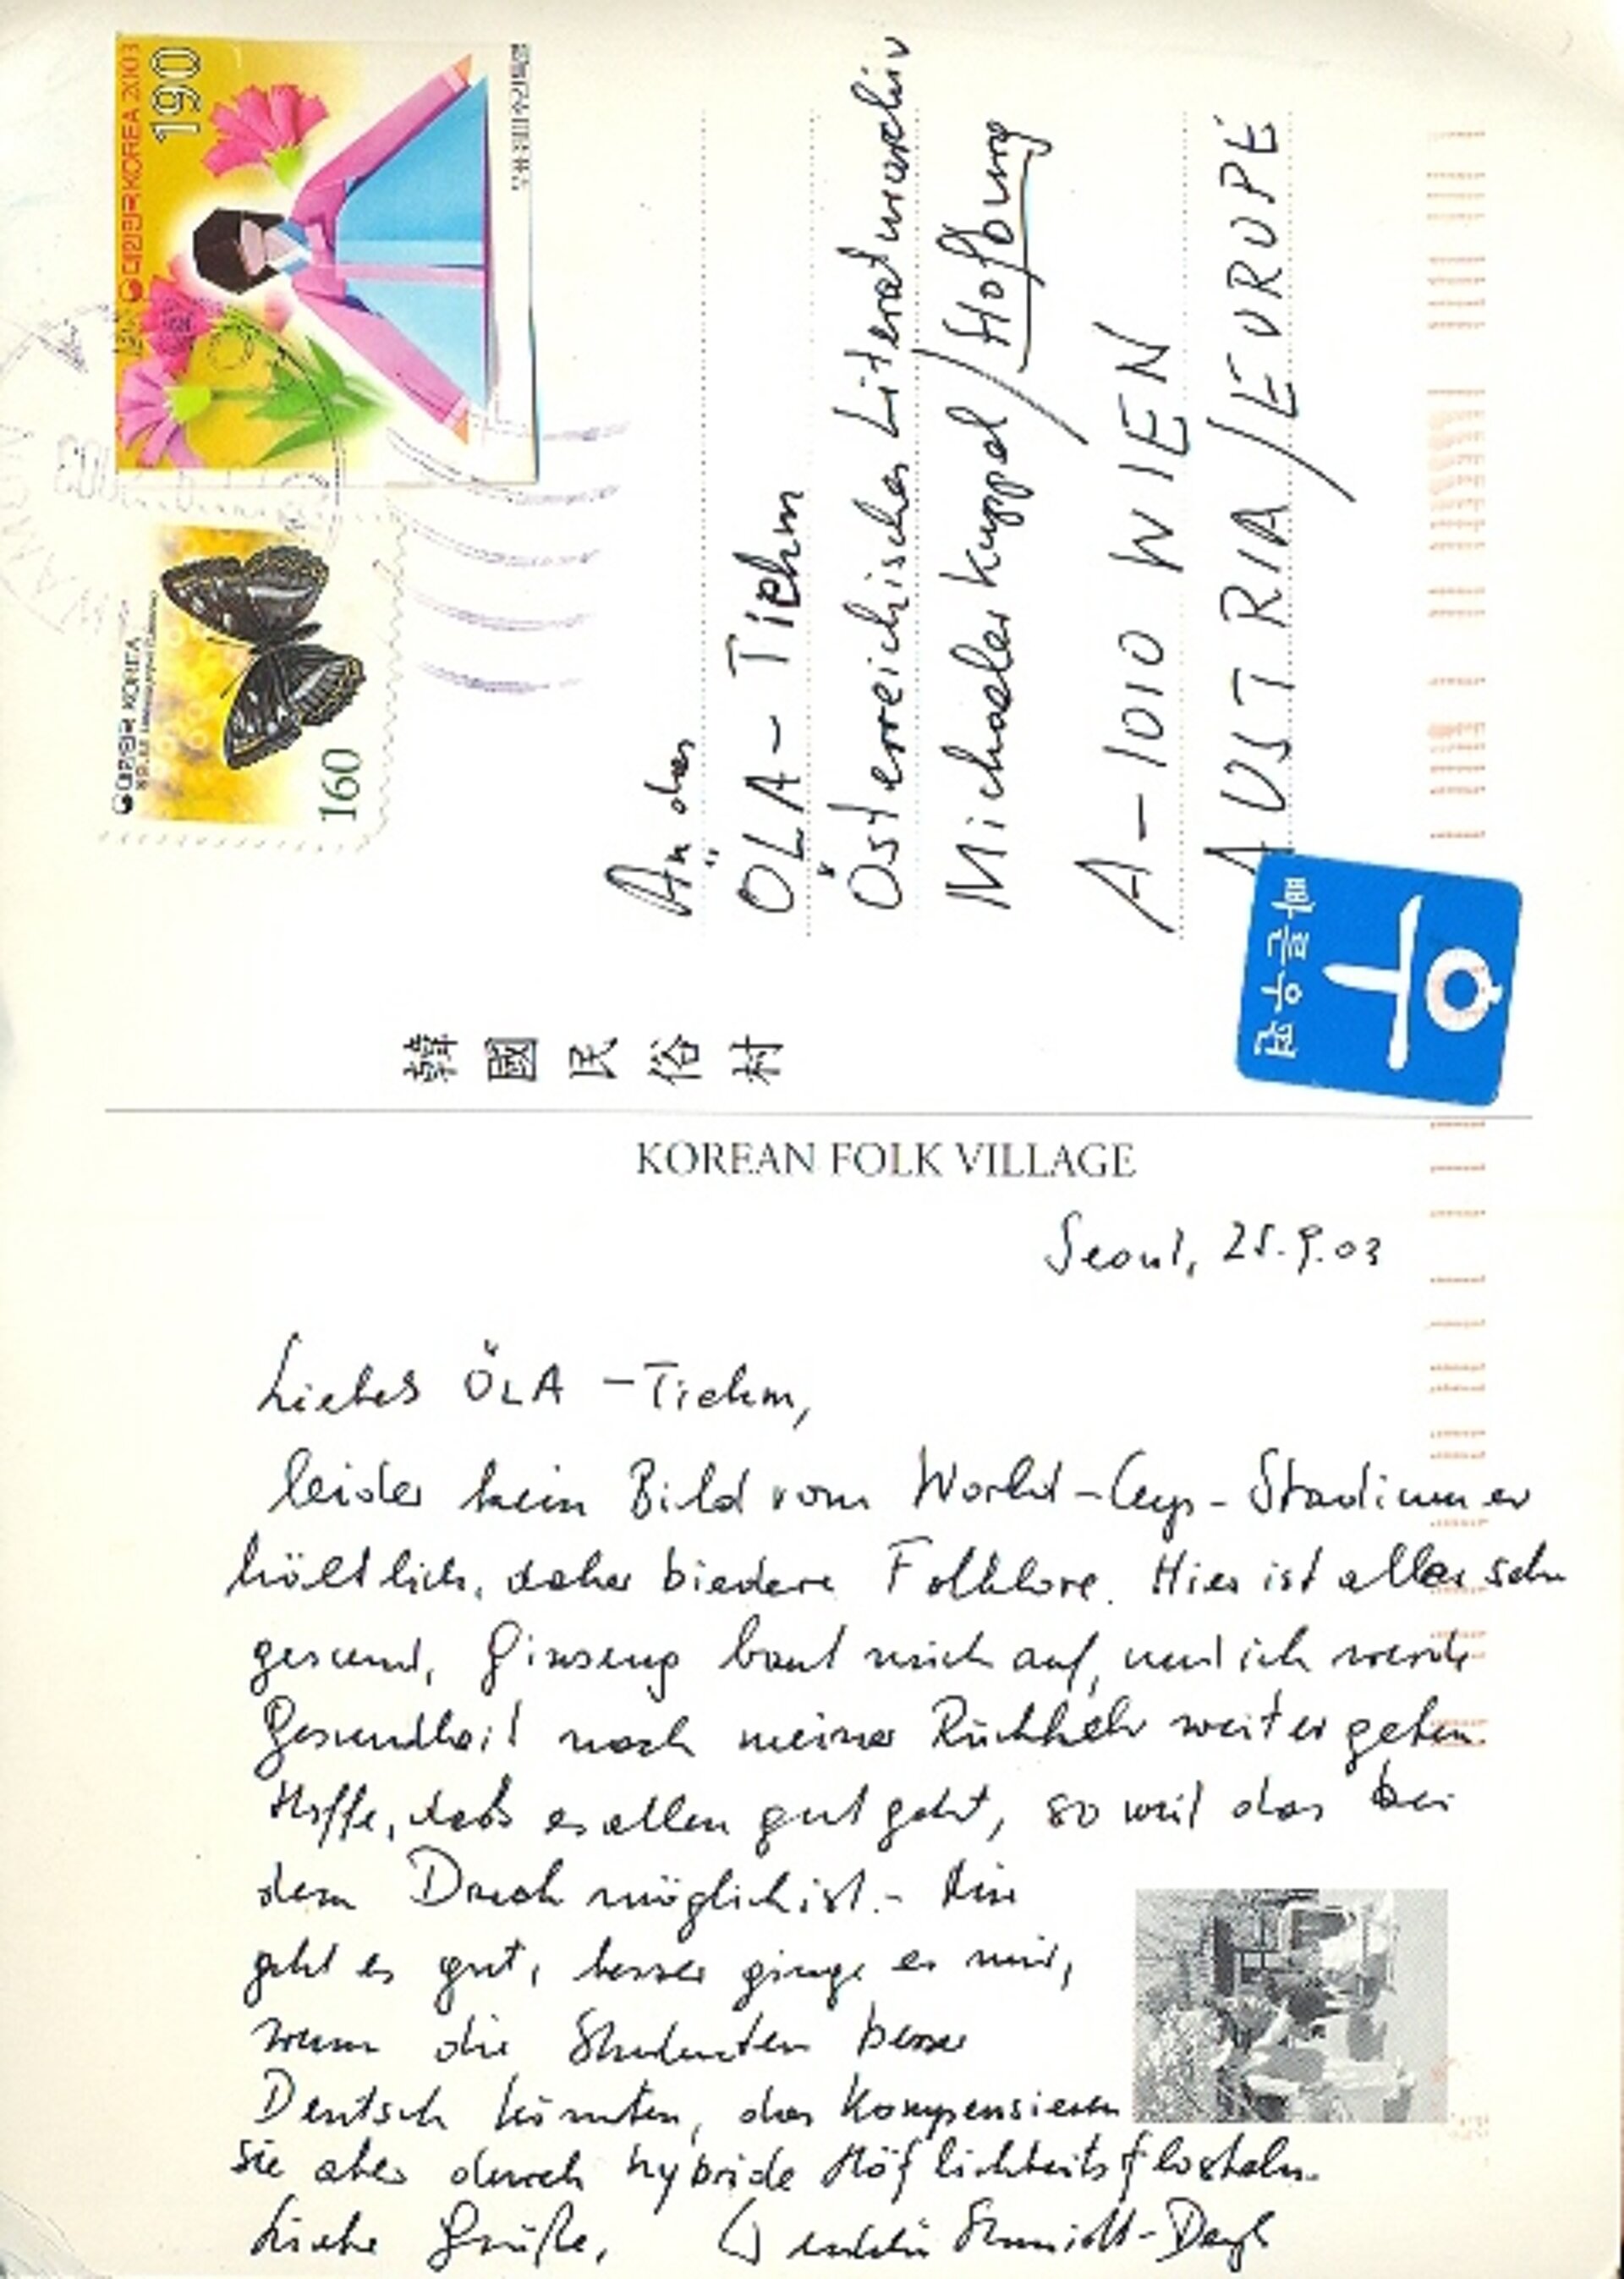 대한민국 KOREA 2003
190
대한민국 KOREA
160
An das
ÖLA-Team
Österreichisches Literaturarchiv
Michaelerkuppel/Hofburg
A-1010 WIEN
AUSTRIA/EUROPE
韓國民俗村
KOREAN FOLK VILLAGE
Seoul, 25.9.03
Liebes ÖLA-Team,
leider kein Bild vom World-Cup-Stadium er
hältlich, daher biedere Folklore. Hier ist alles sehr
gesund, Ginseng baut mich auf, und ich werde
Gesundheit nach meiner Rückkehr weitergeben.
Hoffe, daß es allen gut geht, so weit das bei
dem Druck möglich ist. - Mir
geht es gut, besser ginge es mir,
wenn die Studenten besser
Deutsch könnten, das kompensieren
sie aber durch hybride Höflichkeitsfloskeln.
Liebe Grüße, Schmidt-Dengler